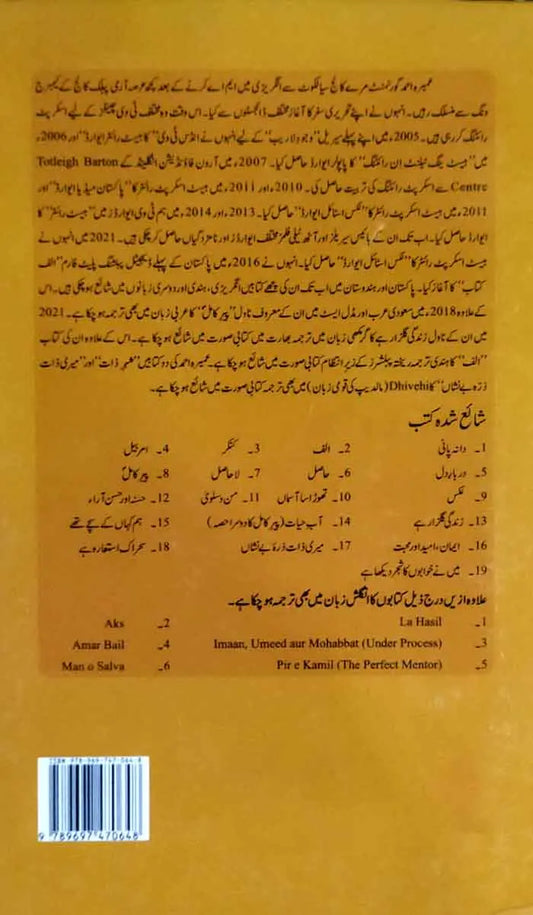 عمیرہ احمد گورنمنٹ مرے کالج سیالکوٹ سے انگریزی میں ایم اے کرنے کے بعد کچھ عرصہ آرمی پبلک کالج کے کیمبرج
ونگ سے منسلک رہیں۔ انہوں نے اپنے تحریری سفر کا آغاز مختلف ڈائجسٹوں سے کیا۔ اس وقت وہ مختلف ٹی وی چینلز کے لیے اسکرپٹ
رائٹنگ کر رہی ہیں۔ 2005ء میں اپنے پہلے سیریل "وجودِ لاریب" کے لیے انہوں نے انڈس ٹی وی" کا بیسٹ رائٹر ایوارڈ" اور 2006ء
میں "بیسٹ ینگ ٹیلنٹ ان رائٹنگ" کا پاپولر ایوارڈ حاصل کیا۔ 2007ء میں آرون فاؤنڈیشن انگلینڈ کے Totleigh Barton
Centre سے اسکرپٹ رائٹنگ کی تربیت حاصل کی۔ 2010ء اور 2011ء میں بیسٹ اسکرپٹ رائٹر کا "پاکستان میڈیا ایوارڈ" اور
2011ء میں بیسٹ اسکرپٹ رائٹر کا "لکس اسٹائل ایوارڈ" حاصل کیا۔ 2013ء اور 2014ء میں ہم ٹی وی ایوارڈز میں "بیسٹ رائٹر" کا
ایوارڈ حاصل کیا۔ اب تک ان کے بائیس سیریلز اور آٹھ ٹیلی فلمز مختلف ایوارڈز اور نامزدگیاں حاصل کر چکی ہیں۔ 2021 میں انہوں نے
بیسٹ اسکرپٹ رائٹر کا "لکس اسٹائل ایوارڈ" حاصل کیا۔ انہوں نے 2016ء میں پاکستان کے پہلے ڈیجیٹل پبلشنگ پلیٹ فارم "الف
کتاب" کا آغاز کیا۔ پاکستان اور ہندوستان میں اب تک ان کی چھے کتابیں انگریزی، ہندی اور دوسری زبانوں میں شائع ہو چکی ہیں۔ اس
کے علاوہ 2018ء میں سعودی عرب اور مڈل ایسٹ میں ان کے معروف ناول "پیرِ کامل" کا عربی زبان میں بھی ترجمہ ہو چکا ہے۔ 2021
میں ان کے ناول زندگی گلزار ہے کا گرمکھی زبان میں ترجمہ بھارت میں کتابی صورت میں شائع ہو چکا ہے۔ اس کے علاوہ ان کی کتاب
"الف" کا ہندی ترجمہ ریختہ پبلشرز کے زیرِ انتظام کتابی صورت میں شائع ہو چکا ہے۔ عمیرہ احمد کی دو کتابیں "شہرِ ذات" اور "میری ذات
ذرّہ بے نشاں" کا Dhivehi (مالدیپ کی قومی زبان) میں بھی ترجمہ کتابی صورت میں شائع ہو چکا ہے۔
شائع شدہ کتب
1۔ دانہ پانی 2۔ الف 3۔ کنکر 4۔ امربیل
5۔ دربارِ دل 6۔ حاصل 7۔ لا حاصل 8۔ پیرِ کامل
9۔ عکس 10۔ تھوڑا سا آسماں 11۔ من و سلویٰ 12۔ حسنہ اور حسن آراء
13۔ زندگی گلزار ہے 14۔ آبِ حیات (پیرِ کامل کا دوسرا حصہ) 15۔ ہم کہاں کے سچے تھے
16۔ ایمان، امید اور محبت 17۔ میری ذات ذرّہ بے نشاں 18۔ سحر اک استعارہ ہے
19۔ میں نے خوابوں کا شجر دیکھا ہے
علاوہ ازیں درج ذیل کتابوں کا انگلش زبان میں بھی ترجمہ ہو چکا ہے۔
1۔ La Hasil 2۔ Aks
3۔ Imaan, Umeed aur Mohabbat (Under Process) 4۔ Amar Bail
5۔ Pir e Kamil (The Perfect Mentor) 6۔ Man o Salva
ISBN 978-969-747-064-8
9 789697 470648